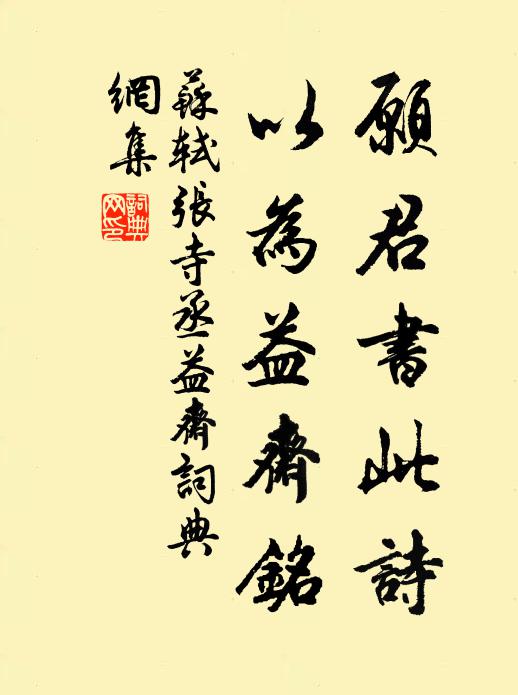 願君書此詩
以為益齋銘
蘇軾張寺丞益齋詞典
網集
詞典
网印